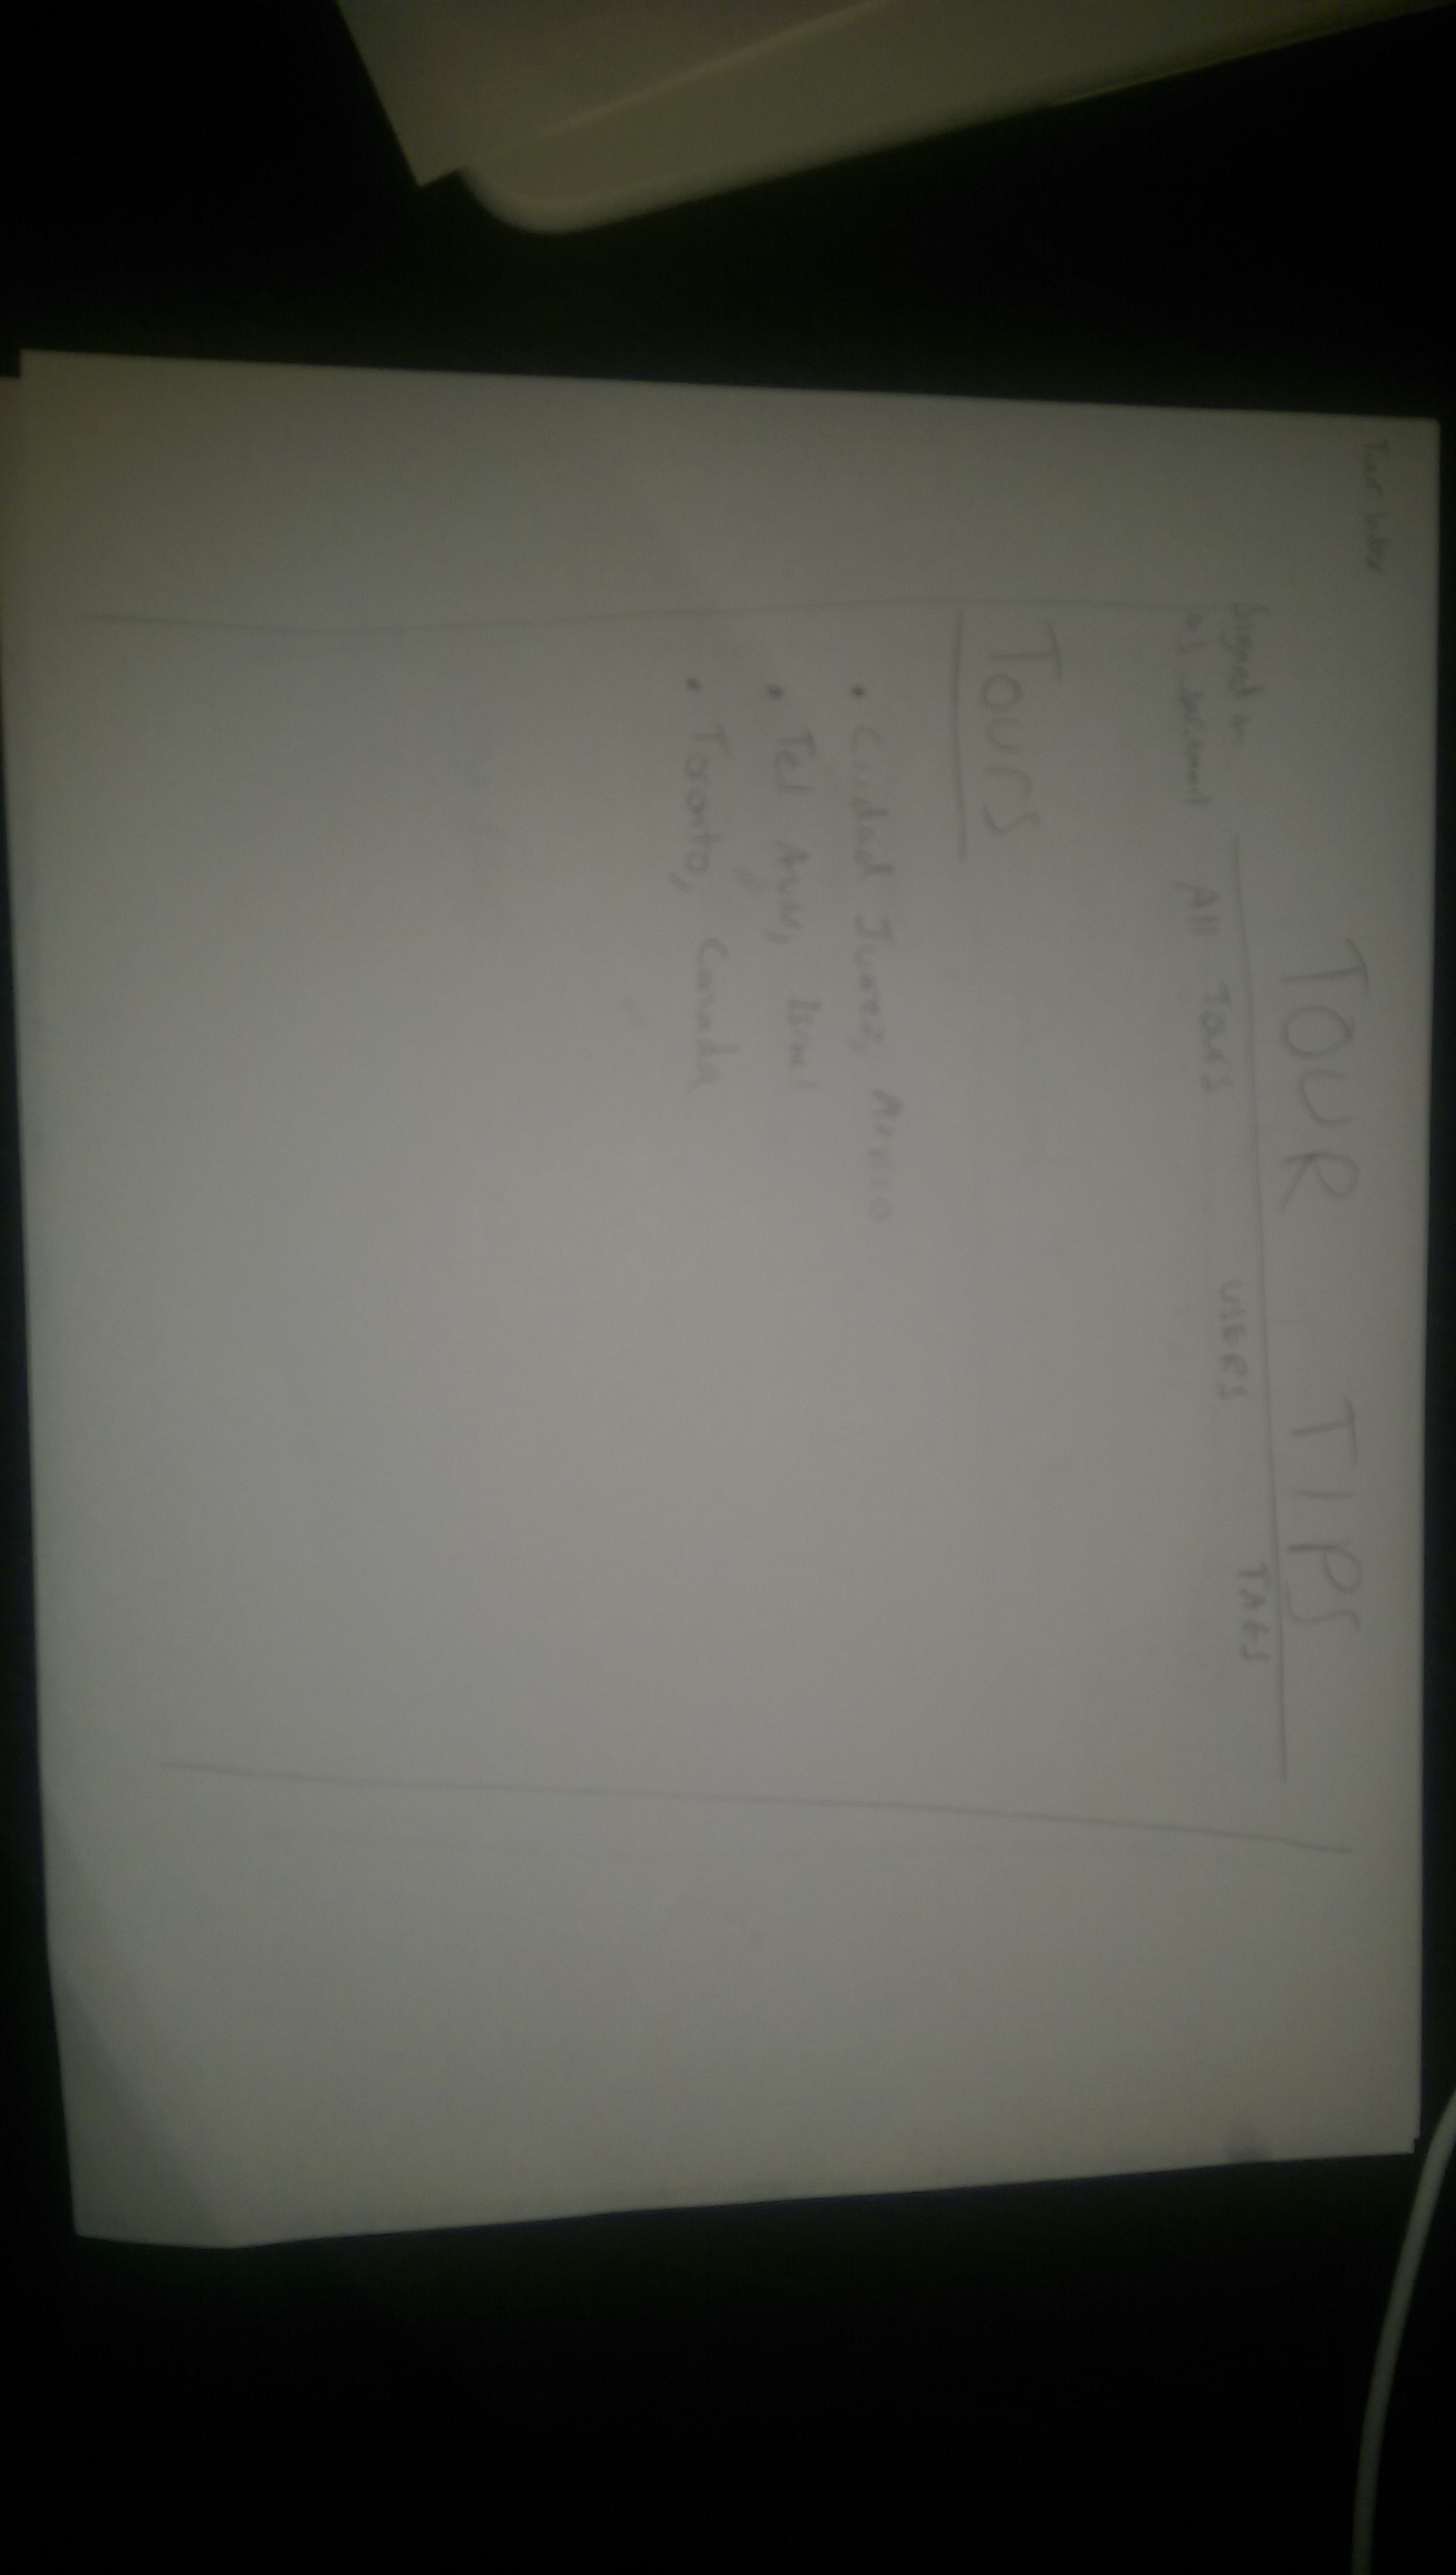 Tour Index
TOUR TIPS
Signed in
as
All Tours
USERS
TAGS
Tours
• Cuidad Juarez, Mexico
• Tel Aviv, Israel
• Toronto, Canada